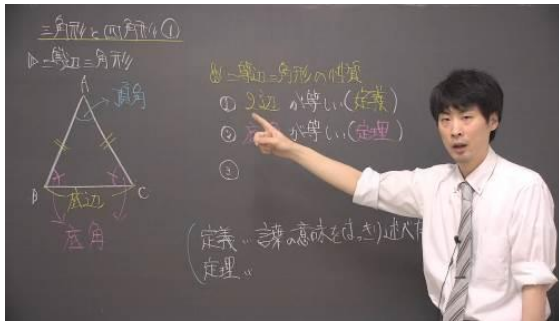 三角形と四角形①
▷二等辺三角形
A
頂角
B
底辺
C
底角
◎二等辺三角形の性質
① 2辺が等しい(定義)
② 底角が等しい(定理)
③
定義‥言葉の意味をはっきり述べた
定理‥